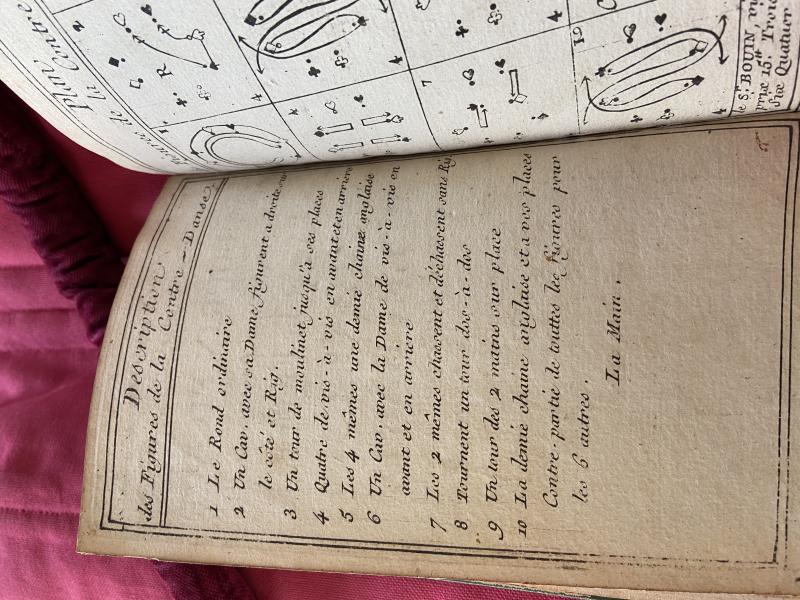 Plan
Figures de la Contre
1
2
R
4
4
4
7
12
4
le Sr. BOUIN
prix 15.
Six Quatier
Description
des Figures de la Contre-Danse.
1 Le Rond ordinaire
2 Un Cav. avec sa Dame figurent a droite sur
le côté et Rig.
3 Un tour de moulinet jusqu'à ses places
4 Quatre de vis-à-vis en avant et en arriere
5 Les 4 mêmes une demie chaine anglaise
6 Un Cav. avec la Dame de vis-à-vis en
avant et en arriere
7 Les 2 mêmes chassent et déchassent sans Rig.
8 Tournent un tour dos-à-dos
9 Un tour des 2 mains sur place
10 La demie chaine anglaise et a vos places
Contre-partie de touttes les figures pour
les 6 autres.
La Main.